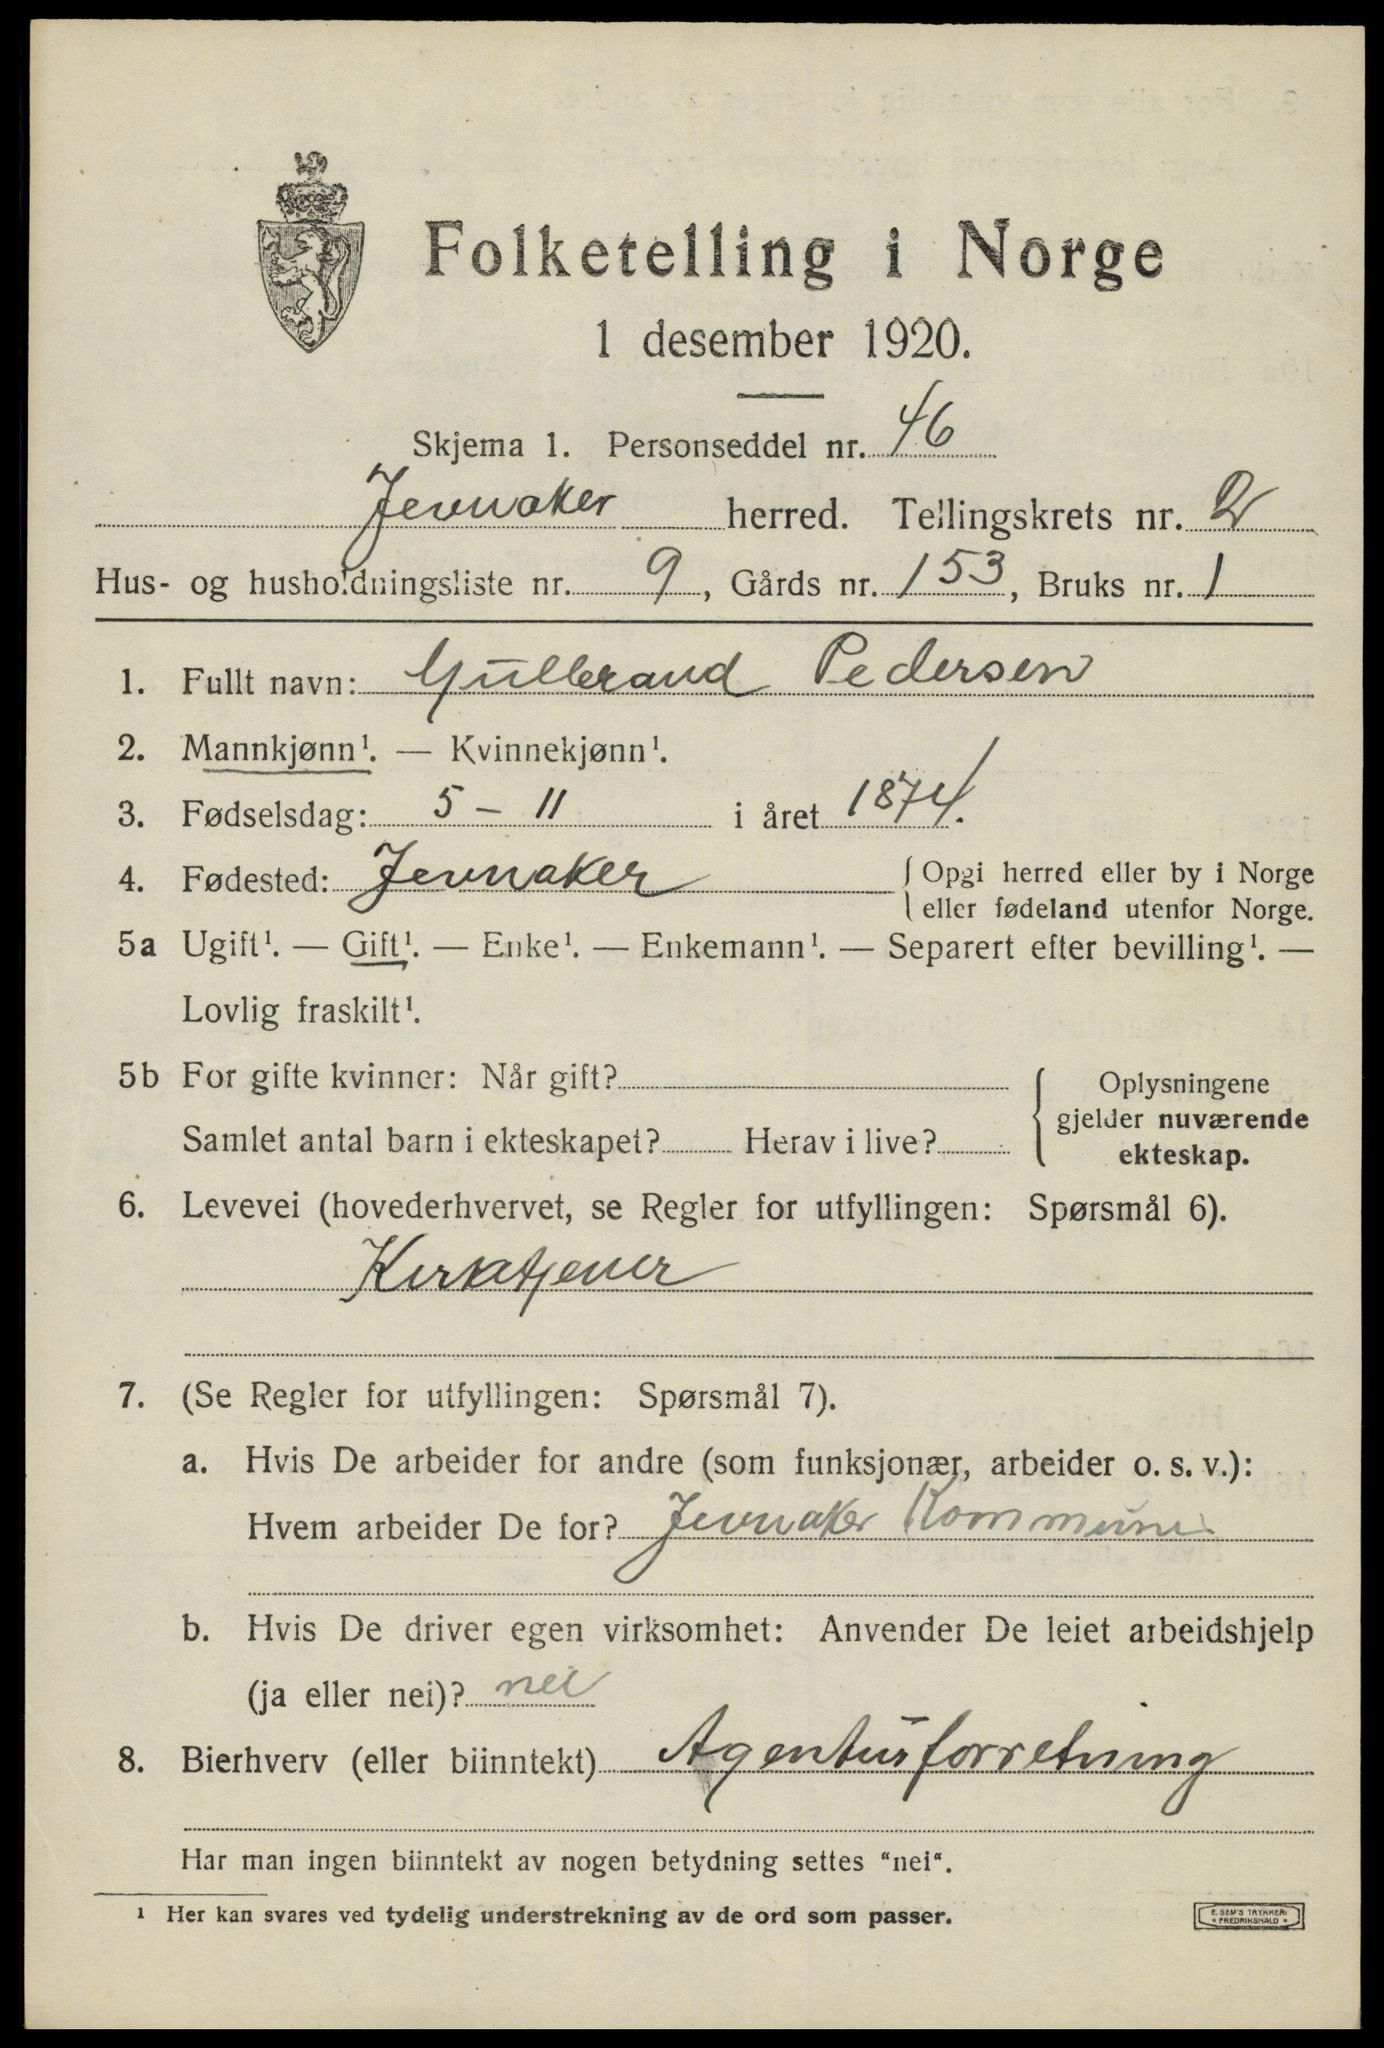 Folketelling i Norge
1 desember 1920.
Skjema 1. Personseddel nr. 46
Jevnaker herred. Tellingskrets nr. 2
Hus- og husholdningsliste nr. 9, Gårds nr. 153, Bruks nr. 1
1. Fullt navn: Gulbrand Pedersen
2. Mannkjønn¹. — Kvinnekjønn¹.
3. Fødselsdag: 5 – 11 i året 1874.
4. Fødested: Jevnaker { Opgi herred eller by i Norge
eller fødeland utenfor Norge.
5a Ugift¹. — Gift¹. — Enke¹. — Enkemann¹. — Separert efter bevilling¹. —
Lovlig fraskilt¹.
5b For gifte kvinner: Når gift?
Samlet antal barn i ekteskapet? Herav i live?
{ Oplysningene
gjelder nuværende
ekteskap.
6. Levevei (hovederhvervet, se Regler for utfyllingen: Spørsmål 6).
Kirketjener
7. (Se Regler for utfyllingen: Spørsmål 7).
a. Hvis De arbeider for andre (som funksjonær, arbeider o. s. v.):
Hvem arbeider De for? Jevnaker Kommune
b. Hvis De driver egen virksomhet: Anvender De leiet arbeidshjelp
(ja eller nei)? nei
8. Bierhverv (eller biinntekt) Agenturforretning
Har man ingen biinntekt av nogen betydning settes "nei".
¹ Her kan svares ved tydelig understrekning av de ord som passer.
E. SEM'S TRYKKERI
* FREDRIKSHALD *